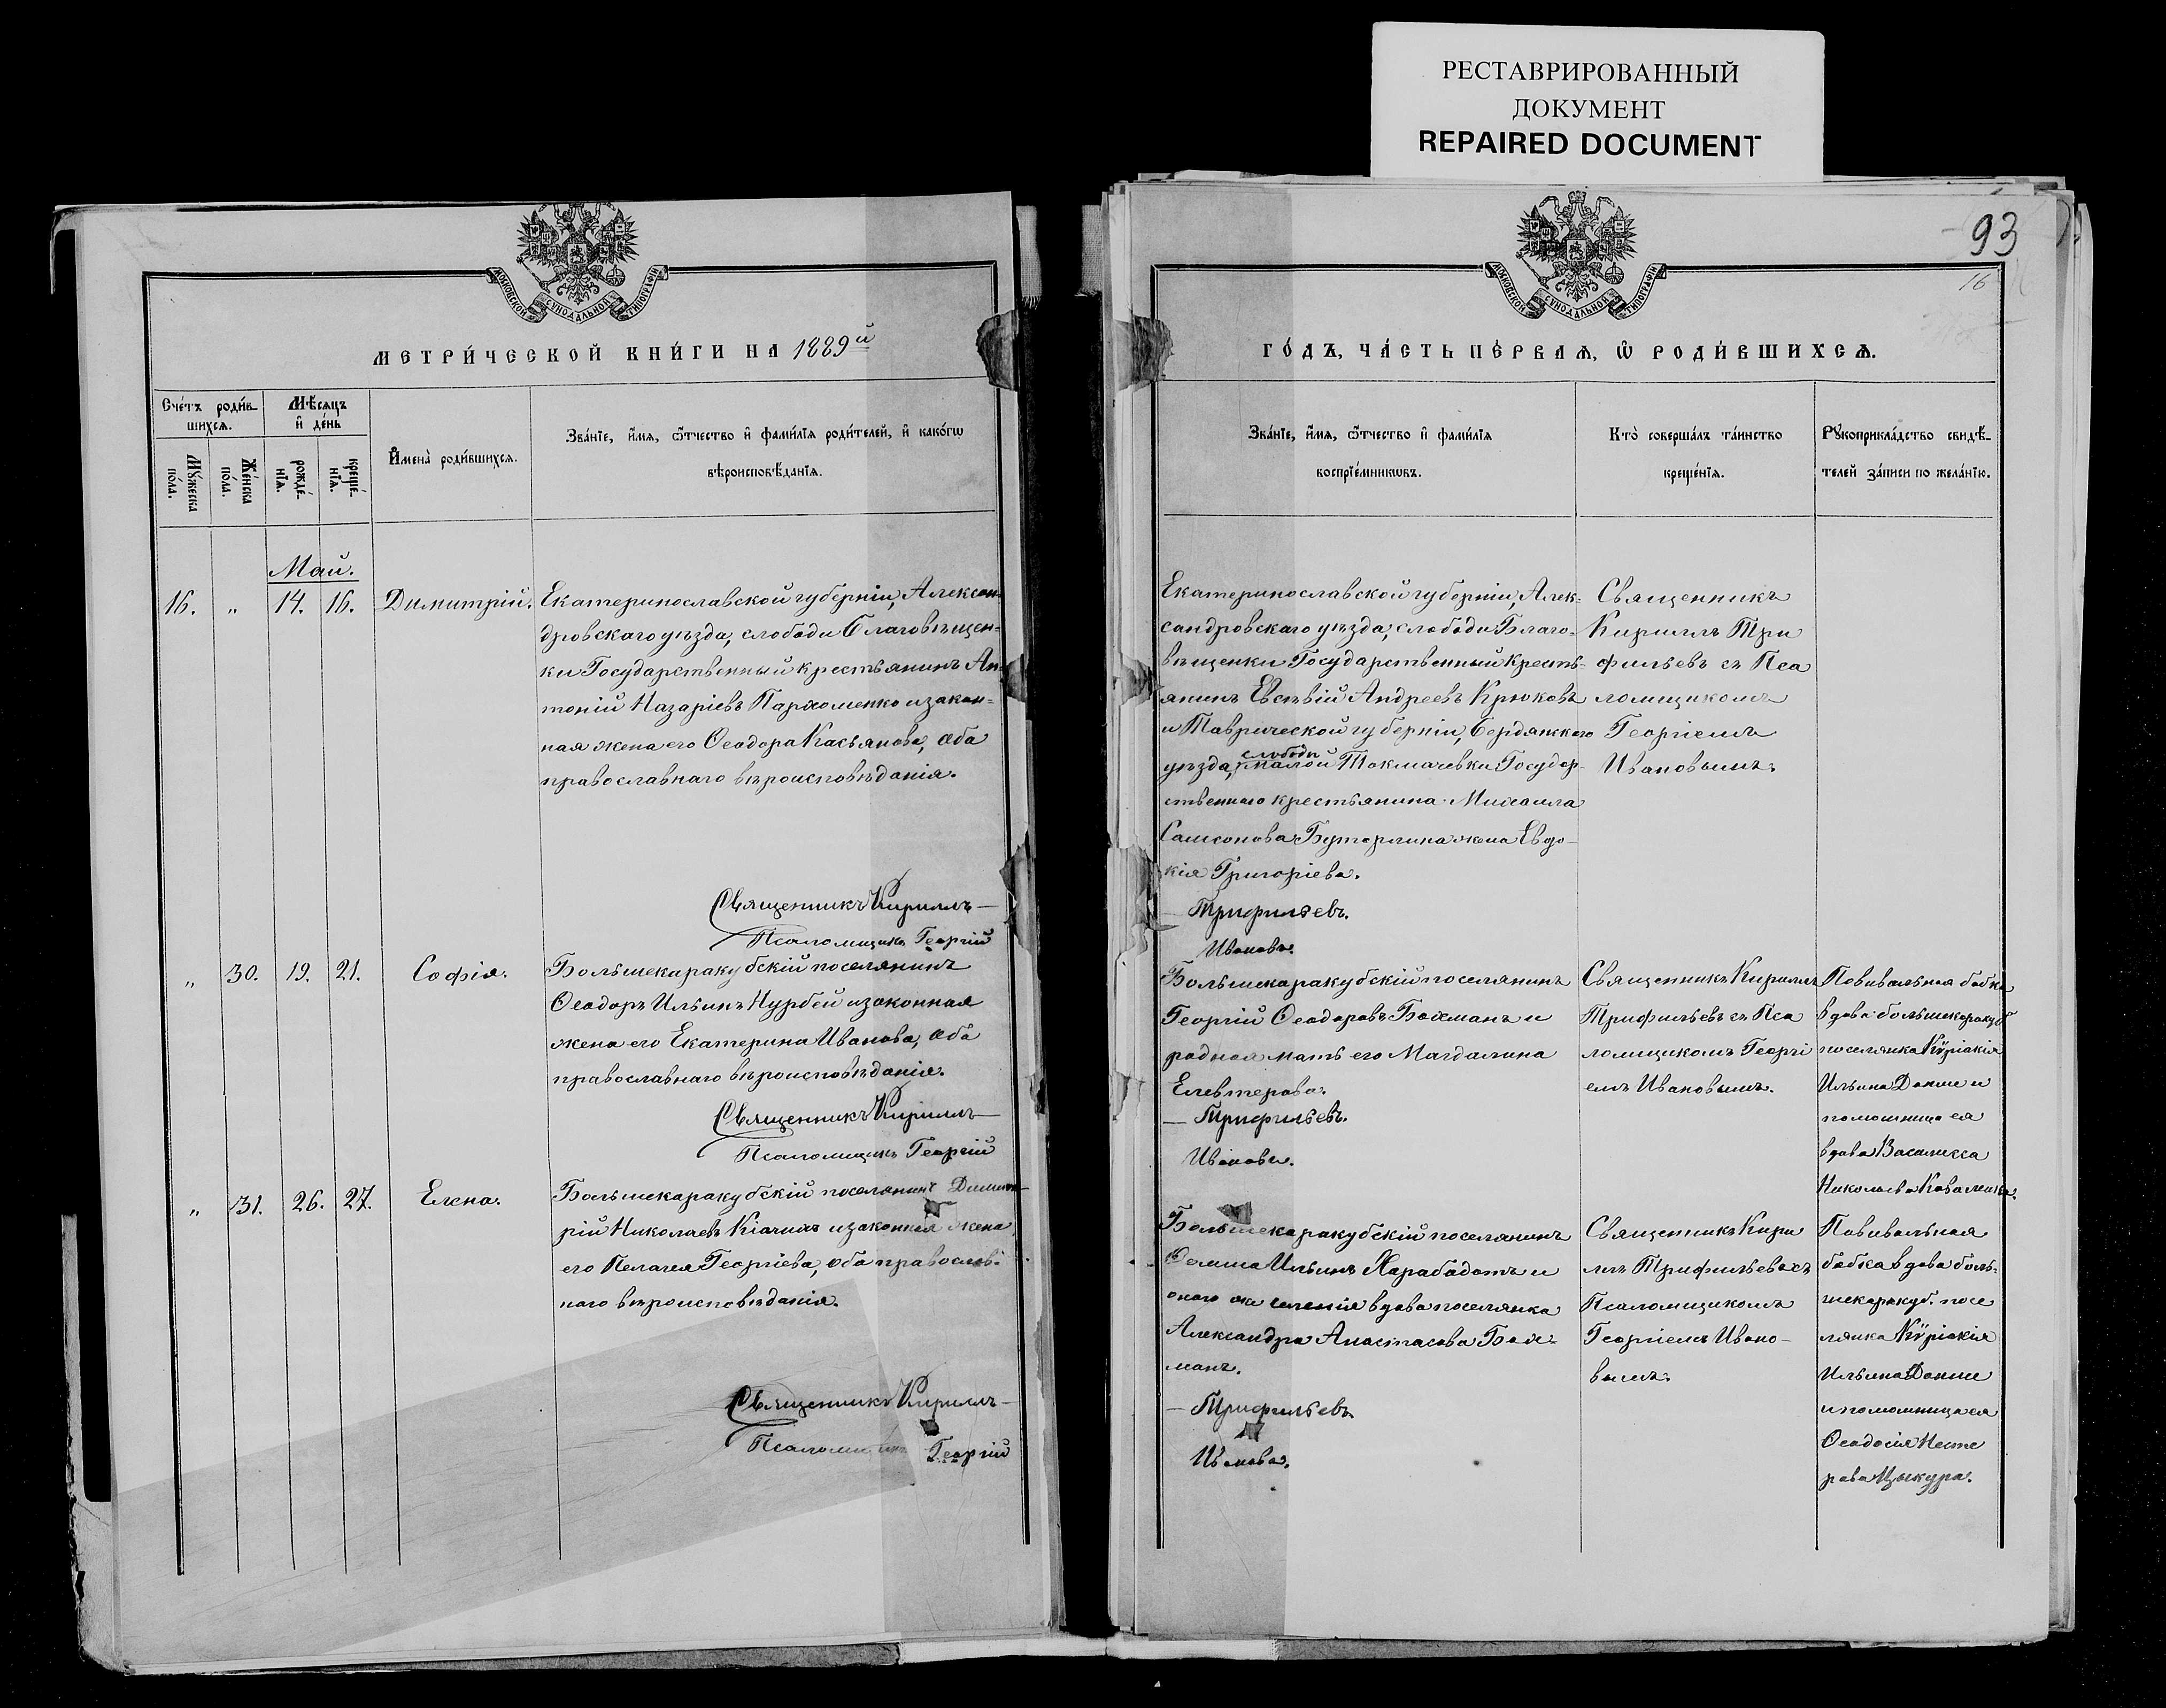 РЕСТАВРИРОВАННЫЙ
ДОКУМЕНТ
REPAIRED DOCUMENT
93
16
МОСКОВСКОЙ СѴНОДАЛЬНОЙ ТИПОГРАФІИ
МЕТРИ́ЧЕСКОЙ КНИ́ГИ НА 1889й
Сче́тъ роди́в-
шихсѧ.
Мѣ́сѧцъ
и҆ де́нь
Мꙋ́жеска
по́ла.
Же́нска
по́ла.
рожде́-
нїѧ.
креще́-
нїѧ.
И҆мена̀ роди́вшихсѧ.
Зва́нїе, и҆́мѧ, ѻ҆́тчество и҆ фами́лїѧ роди́телей, и҆ како́гѡ
вѣроисповѣ́данїѧ.
Май.
16. „ 14. 16. Димитрій.
Екатеринославской губерніи, Алексан-
дровскаго уѣзда, слободи Благовѣщен-
ки Государственный крестьянинъ Ан-
тоній Назаріевъ Пархоменко и закон-
ная жена его Ѳеодора Касьянова, оба
православнаго вѣроисповѣданія.
Священникъ Кириллъ —
Псаломщикъ Георгій
„ 30. 19. 21. Софія.
Большекаракубскій поселянинъ
Ѳеодоръ Ильинъ Нурбей и законная
жена его Екатерина Иванова, оба
православнаго вѣроисповѣданія.
Священникъ Кириллъ —
Псаломщикъ Георгій
„ 31. 26. 27. Елена.
Большекаракубскій поселянинъ Димит-
рій Николаевъ Кіачихъ и законная жена
его Пелагея Георгіева, оба православ-
наго вѣроисповѣданія.
Священникъ Кириллъ —
Псаломщикъ Георгій
МОСКОВСКОЙ СѴНОДАЛЬНОЙ ТИПОГРАФІИ
ГО́ДЪ, ЧА́СТЬ ПЕ́РВАѦ, Ѽ РОДИ́ВШИХСѦ.
Зва́нїе, и҆́мѧ, ѻ҆́тчество и҆ фами́лїѧ
воспрїе́мникѡвъ.
Кто̀ соверша́лъ та́инство
креще́нїѧ.
Рꙋкоприкла́дство свидѣ́-
телей за́писи по жела́нїю.
Екатеринославской губерніи, Алек-
сандровскаго уѣзда, слободи Благо-
вѣщенки Государственный кресть-
янинъ Евсѣвій Андреевъ Крюковъ
и Таврической губерніи, Бердянскаго
слободи
уѣзда, Малой Токмачевки Государ-
ственнаго крестьянина Михаила
Самсонова Бутерлина жена Евдо-
кія Григоріева.
— Трифильевъ.
Ивановъ.
Священникъ
Кириллъ Три
фильевъ съ Пса
ломщикомъ
Георгіемъ
Ивановымъ.
Большекаракубскій поселянинъ
Георгій Ѳеодоровъ Бахманъ и
родная мать его Магдалина
Елевтерова.
— Трифильевъ.
Ивановъ.
Священникъ Кириллъ
Трифильевъ съ Пса
ломщикомъ Георгі
емъ Ивановымъ.
Повивальная бабка
вдова большекаракуб
поселянка Кѵріакія
Ильина Донше и
помощница ея
вдова Василисса
Николаева Коваленко.
Большекаракубскій поселянинъ
Ѳома Ильинъ Харабадотъ и
онаго же селенія вдова поселянка
Александра Анастасова Бах-
манъ.
— Трифильевъ.
Ивановъ.
Священникъ Кири
ллъ Трифильевъ съ
Псаломщикомъ
Георгіемъ Ивано-
вымъ.
Повивальная
бабка вдова боль-
шекаракуб. посе
лянка Кѵріакія
Ильина Донше
и помощница ея
Ѳеодосія Несте
рова Цыкура.